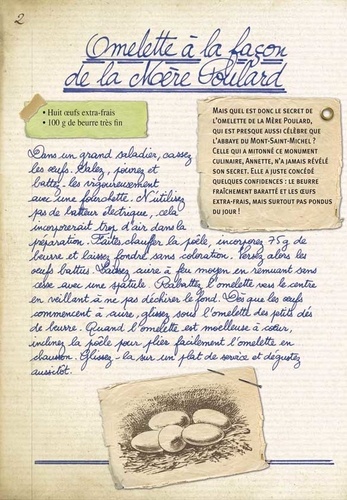 2
Omelette à la façon
de la Mère Poulard
• Huit œufs extra-frais
• 100 g de beurre très fin
MAIS QUEL EST DONC LE SECRET DE
L'OMELETTE DE LA MÈRE POULARD,
QUI EST PRESQUE AUSSI CÉLÈBRE QUE
L'ABBAYE DU MONT-SAINT-MICHEL ?
CELLE QUI A MITONNÉ CE MONUMENT
CULINAIRE, ANNETTE, N'A JAMAIS RÉVÉLÉ
SON SECRET. ELLE A JUSTE CONCÉDÉ
QUELQUES CONFIDENCES : LE BEURRE
FRAÎCHEMENT BARATTÉ ET LES ŒUFS
EXTRA-FRAIS, MAIS SURTOUT PAS PONDUS
DU JOUR !
Dans un grand saladier, cassez
les œufs. Salez, poivrez et
battez-les vigoureusement
avec une fourchette. N'utilisez
pas de batteur électrique, cela
incorporerait trop d'air dans la
préparation. Faites chauffer la poêle, incorporez 75 g de
beurre et laissez fondre sans coloration. Versez alors les
œufs battus. Laissez cuire à feu moyen en remuant sans
cesse avec une spatule. Rabattez l'omelette vers le centre
en veillant à ne pas déchirer le fond. Dès que les œufs
commencent à cuire, glissez sous l'omelette des petits dés
de beurre. Quand l'omelette est moelleuse à cœur,
inclinez la poêle pour plier facilement l'omelette en
chausson. Glissez-la sur un plat de service et dégustez
aussitôt.